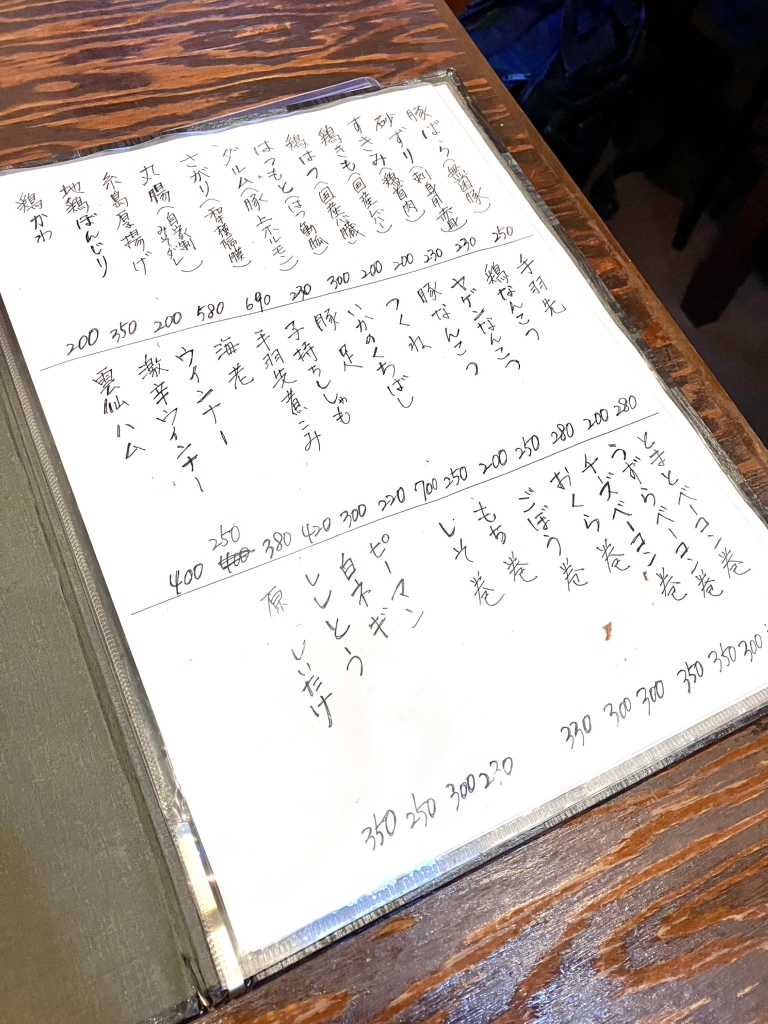 豚ばら(無菌豚) 250
砂ずり(刺身用赤身) 230
すきみ(鶏首肉) 230
鶏きも(国産レバー) 200
鶏はつ(国産心臓) 200
はつもと(はつ動脈) 300
グルム(豚上ホルモン) 230
さがり(和種横隔膜) 690
丸腸(自家製みそダレ) 580
糸島厚揚げ 200
地鶏ぼんじり 350
鶏かわ 200
手羽先 280
鶏なんこつ 200
ヤゲンなんこつ 280
豚なんこつ 250
つくね 200
いかのくちばし 250
豚足 700
子持ちししゃも 220
手羽先煮こみ 300
海老 420
ウインナー 380
激辛ウインナー 400 250
雲仙ハム 400
とまとベーコン巻
うずらベーコン巻 300
チーズベーコン巻 350
おくら巻 350
ごぼう巻 300
もち巻 300
しそ巻 330
ピーマン 230
白ネギ 300
ししとう 250
原しいたけ 350